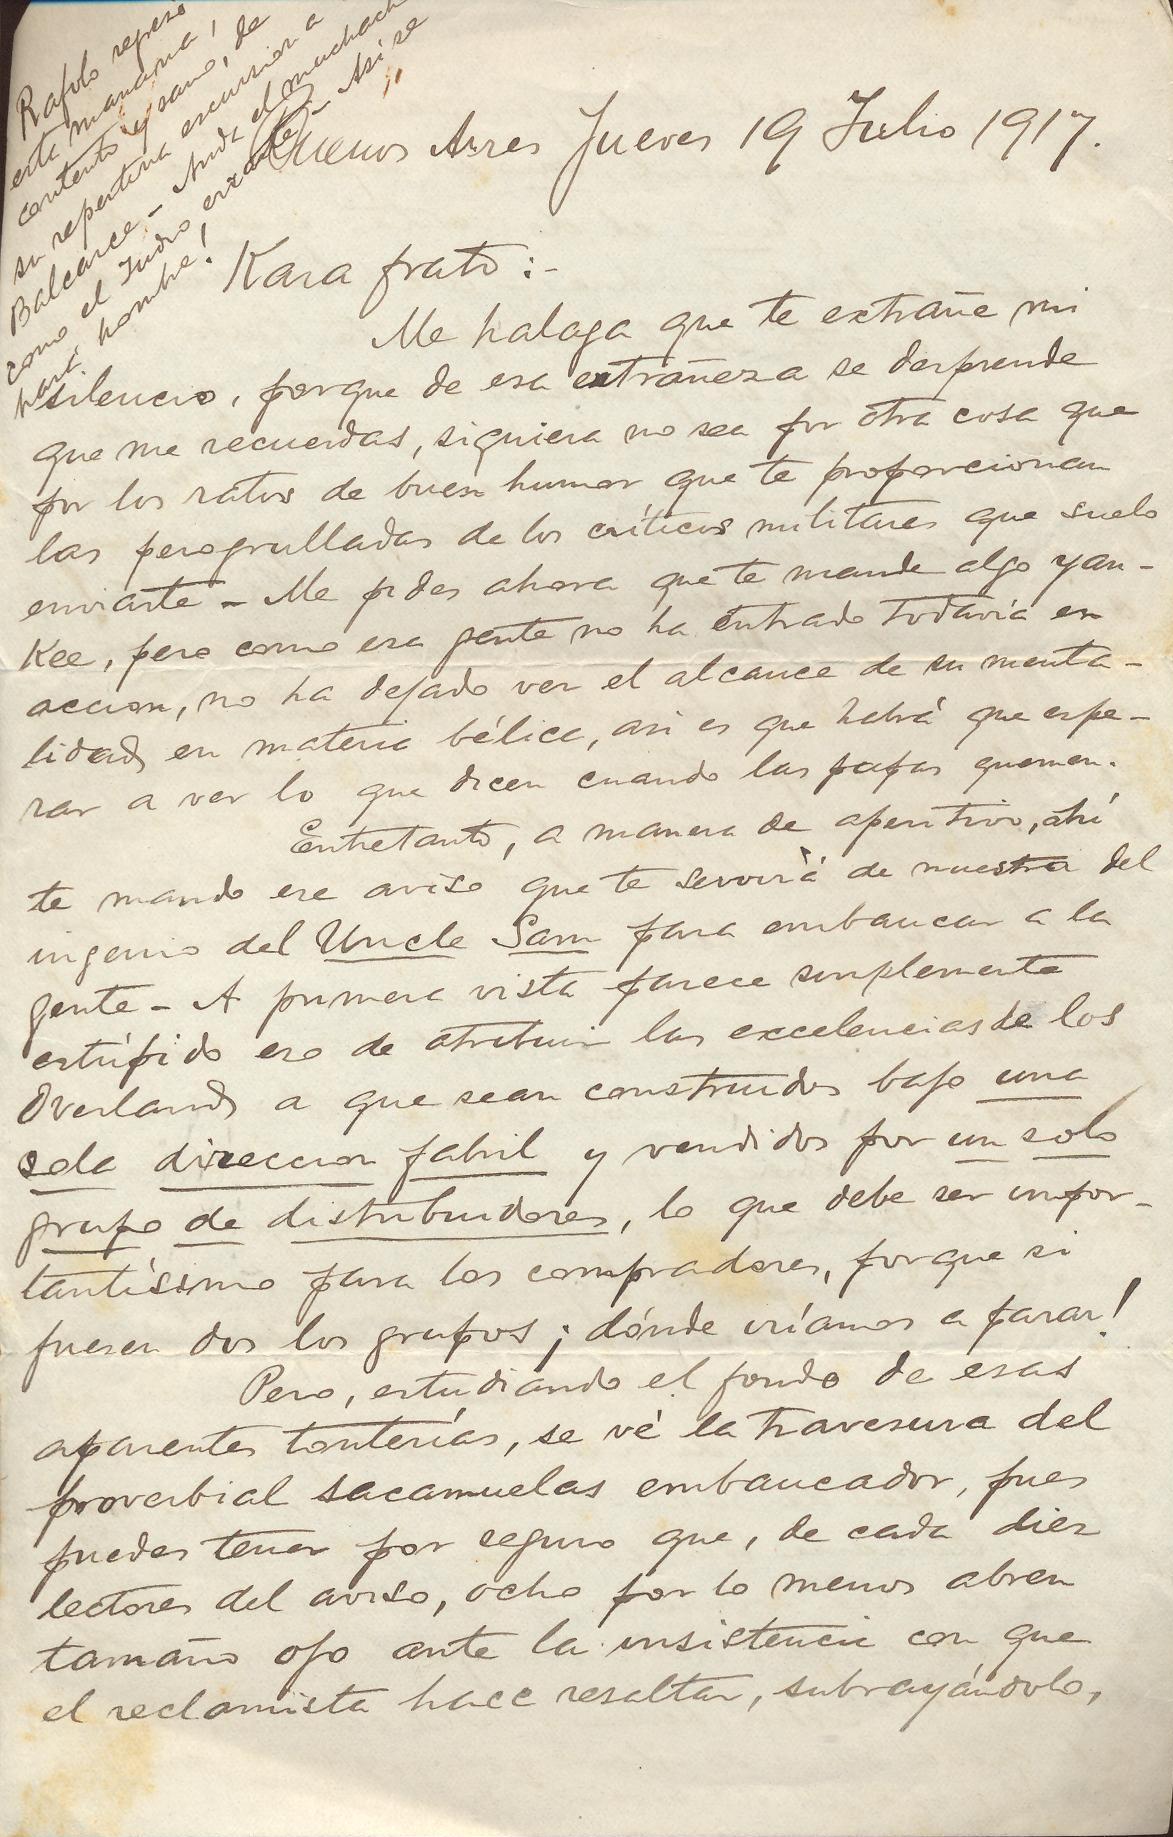 Rafolo regresó
esta mañana,
contento y sano, de
su repentina excursion a
Balcarce – Anda el muchacho
como el Judio errante – Asi se
hará hombre!
Buenos Aires Jueves 19 Julio 1917.
Kara frato :-
Me halaga que te extrañe mi
silencio, porque de esa extrañeza se desprende
que me recuerdas, siquiera no sea por otra cosa que
por los ratos de buen humor que te proporcionan
las perogrulladas de los críticos militares que suelo
enviarte – Me pides ahora que te mande algo yan-
kee, pero como esa gente no ha entrado todavia en
accion, no ha dejado ver el alcance de su menta-
lidad en materia bélica, asi es que habrá que espe-
rar a ver lo que dicen cuando las papas quemen.
Entretanto, a manera de aperitivo, ahí
te mando ese aviso que te servirá de muestra del
ingenio del Uncle Sam para embaucar a la
gente – A primera vista parece simplemente
estúpido eso de atribuir las excelencias de los
Overlands a que sean construidos bajo una
sola direccion fabril y vendidos por un solo
grupo de distribuidores, lo que debe ser impor-
tantísimo para los compradores, porque si
fuesen dos los grupos ¡ dónde iríamos a parar!
Pero, estudiando el fondo de esas
aparentes tonterías, se vé la travesura del
proverbial sacamuelas embaucador, pues
puedes tener por seguro que, de cada diez
lectores del aviso, ocho por lo menos abren
tamaño ojo ante la insistencia con que
el reclamista hace resaltar, subrayándolo,